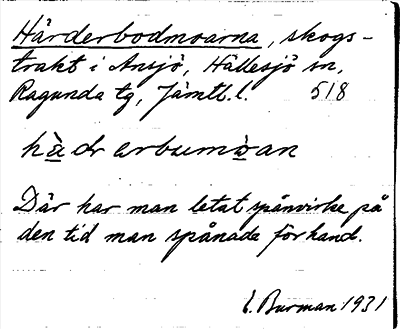 Härderbodmoarna, skogs-
trakt i Ansjö, Hällesjö sn,
Ragunda tg, Jämtl. l. 518
hàdrarbumòan
Där har man letat spånvirke på
den tid man spånade för hand.
E. Burman 1931